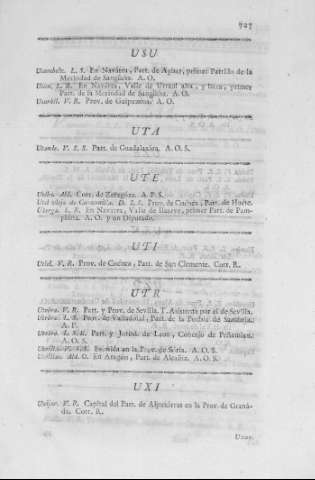 USU
L. S. En Navarra, Part. de Aoiz, primer Partido de la
Merindad de Sangüesa. A. O.
L. R. En Navarra, Valle de Urraul alto, y baxo, primer
Part. de la Merindad de Sangüesa. A. O.
Usurbil. V. R. Prov. de Guipuzcoa. A. O.
UTA
Utande. V. S. S. Part. de Guadalaxara. A. O. S.
UTE
Utebo. Ald. Corr. de Zaragoza. A. P. S.
D. S. S. Prov. de Cuenca, Part. de Huete.
Uterga. L. R. En Navarra, Valle de Ilzarve, primer Part. de Pam-
plona. A. O. y un Diputado.
UTI
Utiel. V. R. Prov. de Cuenca, Part. de San Clemente. Corr. R.
UTR
Utrera. V. R. Part. y Prov. de Sevilla. T. Asistente por el de Sevilla.
L. S. Prov. de Valladolid, Part. de la Puebla de Sanabria.
A. P.
L. Part. y Jurisd. de Leon, Concejo de
A. O. S.
en la Prov. de Soria. A. O. S.
Utrillas. Ald. O. En Aragon, Part. de Alcañiz. A. O. S.
UXI
Uxijar. V. R. Capital del Part. de Alpuxarras en la Prov. de Grana-
da. Corr. R.